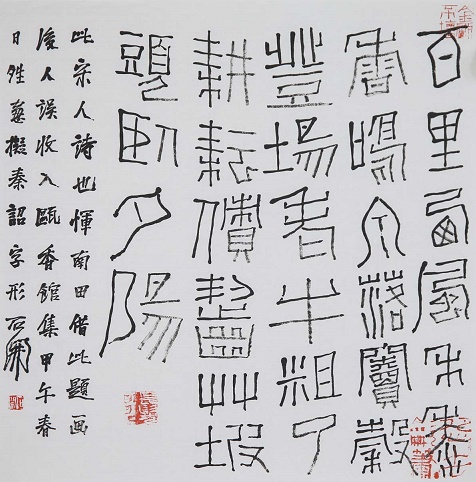 百里西風禾黍
香鳴泉落竇穀
登場老牛粗了
耕耘債齧艸坡
頭臥夕陽
此宋人詩也惲南田借此題画
後人誤收入甌香館集甲午春
日擬秦詔字形石開